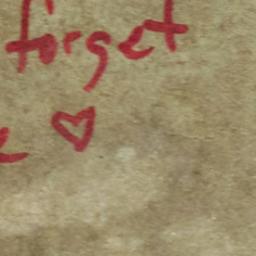 forget
♡